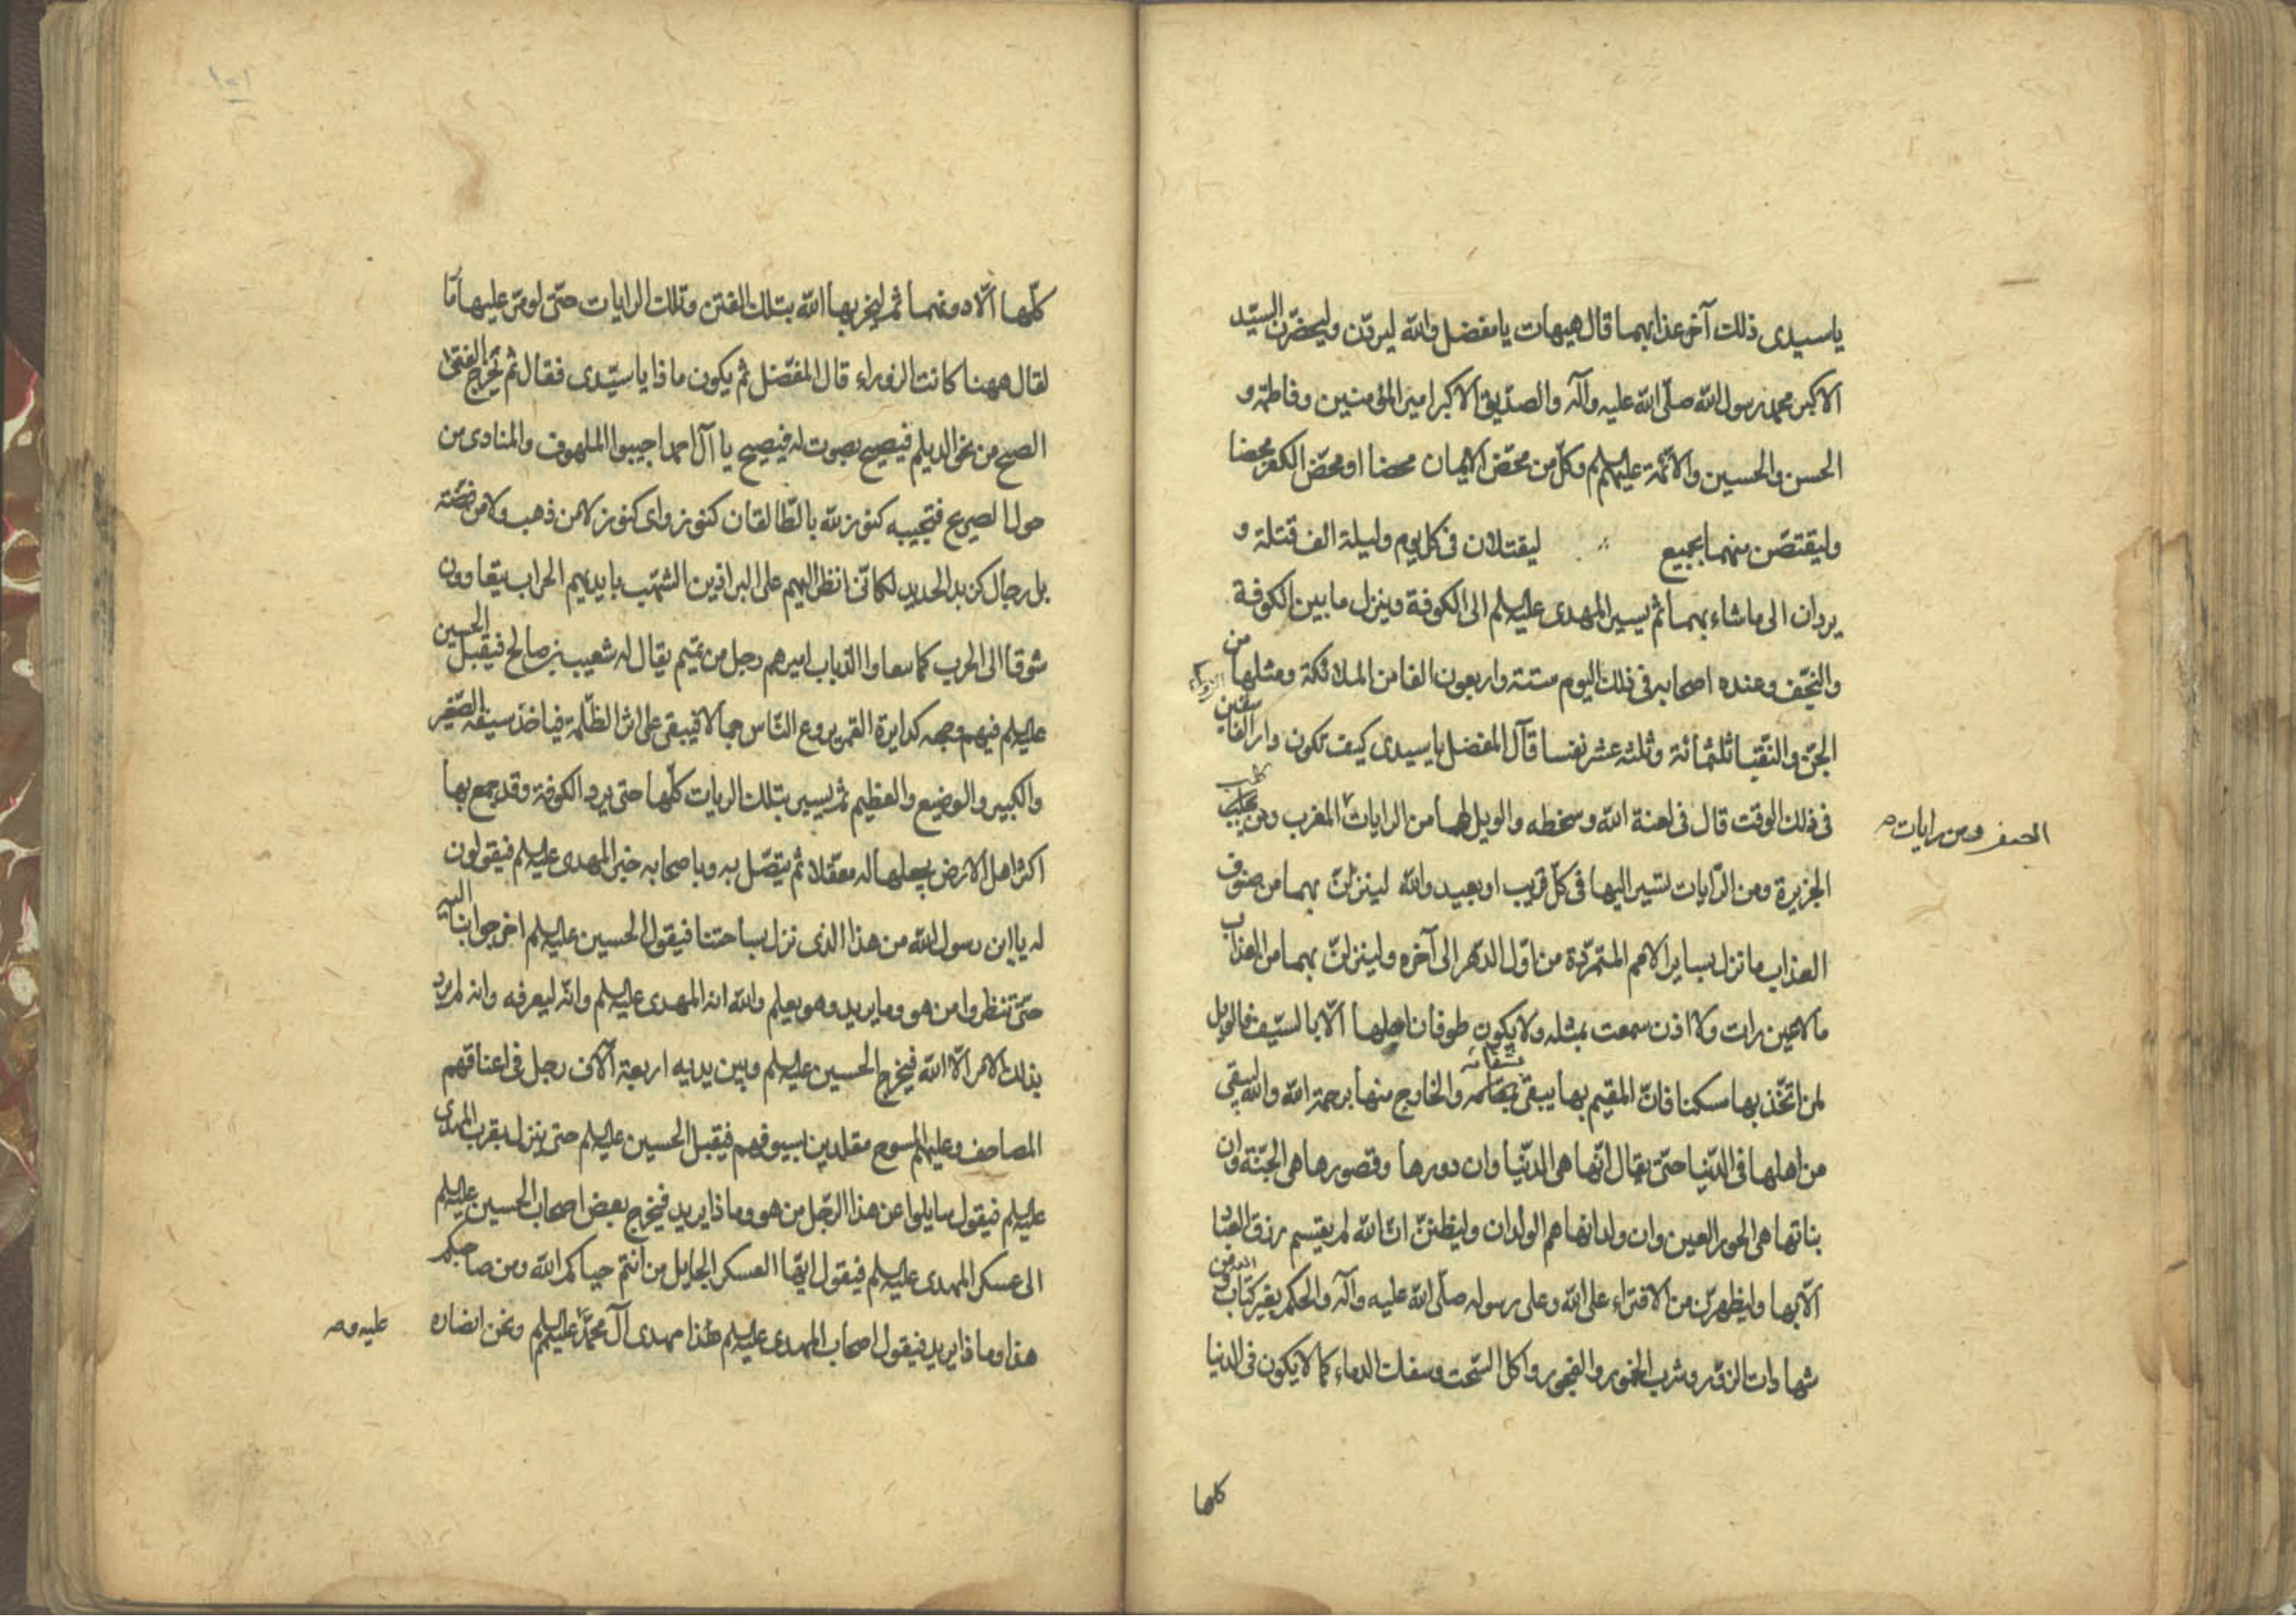 يا سيدى ذلك آخر عذابهما قال هيهات يا مفضل والله ليردن وليحضرن السيّد
الاكبر محمد رسول الله صلّى الله عليه وآله والصدّيق الاكبر امير المؤمنين وفاطمة و
الحسن والحسين والائمّة عليهم السلم وكلّ من محّض الايمان محضا او محّض الكفر محضا
وليقتصّن منهما بجميع ليقتلان فى كل يوم وليلة الف قتلة و
يردان الى ما شاء بهما ثم يسير المهدى عليه السلم الى الكوفة وينزل ما بين الكوفة
والنجف وعنده اصحابه فى ذلك اليوم ستة واربعون الفا من الملائكة ومثلها من
الجنّ والنقبا ثلثمائة وثلثه عشر نفسا قال المفضل يا سيدى كيف تكون دار الفاسقين
فى ذلك الوقت قال فى لعنة الله وسخطه والويل لها من الرايات المغرب ومن
الصفر ومن رايات
الجزيرة ومن الرّايات تسير اليها فى كلّ قريب او بعيد والله لينزلنّ بهما من صنوف
العذاب ما نزل بساير الامم المتمرّدة من اوّل الدّهر الى آخره ولينزلنّ بهما من العذاب
ما لا عين رات ولا اذن سمعت بمثله ولا يكون طوفان اهلها الّا بالسّيف فالويل
لمن اتّخذ بها مسكنا فانّ المقيم بها يبقى بشقائه والخارج منها برحمة الله والله ليبقى
من اهلها فى الدّنيا حتّى يقال انّها هى الدّنيا وان دورها وقصورها هى الجنّة وان
بناتها هى الحور العين وان ولدانها هم الولدان وليظننّ انّ الله لم يقسم رزق العباد
الّا بها وليظهرنّ من الافتراء على الله وعلى رسوله صلّى الله عليه وآله والحكم بغير كتاب الله ومن
شهادات الزّور وشرب الخمور والفجور واكل السّحت وسفك الدماء كما لا يكون فى الدنيا
كلها
١٠١
كلّها الّا دونهما ثم ليخربها الله بتلك الفتن وتلك الرايات حتّى لو مرّ عليها مارّ
لقال ههنا كانت الزوراء قال المفضّل ثم يكون ماذا يا سيّدى فقال ثم يخرج الفتى
الصبح من نحو الديلم فيصيح بصوت له فيصيح يا آل احمد اجيبوا الملهوف والمنادى من
حول الضريح فتجيبه كنوز لله بالطّالقان كنوز واى كنوز لا من ذهب ولا من فضّة
بل رجال كزبر الحديد لكانّى انظر اليهم على البراذين الشّهب بايديهم الحراب يتعاوون
شوقا الى الحرب كما تتعاوا الذياب اميرهم رجل من تميم يقال له شعيب بن صالح فيقبل الحسين
عليه السلم فيهم وجهه كدايرة القمر يروع النّاس جمالا فيبقى على اثر الظّلمة فياخذ سيفه الصّغير
والكبير والوضيع والعظيم ثم يسير بتلك الرايات كلّها حتى يرد الكوفة وقد جمع بها
اكثر اهل الارض يجعلها له معقلا ثم يتّصل به وباصحابه خبر المهدى عليه السلم فيقولون
له يا ابن رسول الله من هذا الذى نزل بساحتنا فيقول الحسين عليه السلم اخرجوا بنا اليه
حتّى تنظروا من هو وما يريد وهو يعلم والله انه المهدى عليه السلم وانّه ليعرفه وانه لم يرد
بذلك الامر الّا الله فيخرج الحسين عليه السلم وبين يديه اربعة آلاف رجل فى اعناقهم
المصاحف وعليهم المسوح مقلدين بسيوفهم فيقبل الحسين عليه السلم حتى ينزل بقرب المهدى
عليه السلم فيقول سايلوا عن هذا الرّجل من هو وماذا يريد فيخرج بعض اصحاب الحسين عليه السلم
الى عسكر المهدى عليه السلم فيقول ايّها العسكر الجايل من انتم حياكم الله ومن صاحبكم
هذا وماذا يريد فيقول اصحاب المهدى عليه السلم هذا مهدى آل محمّد عليهم السلم ونحن انصاره